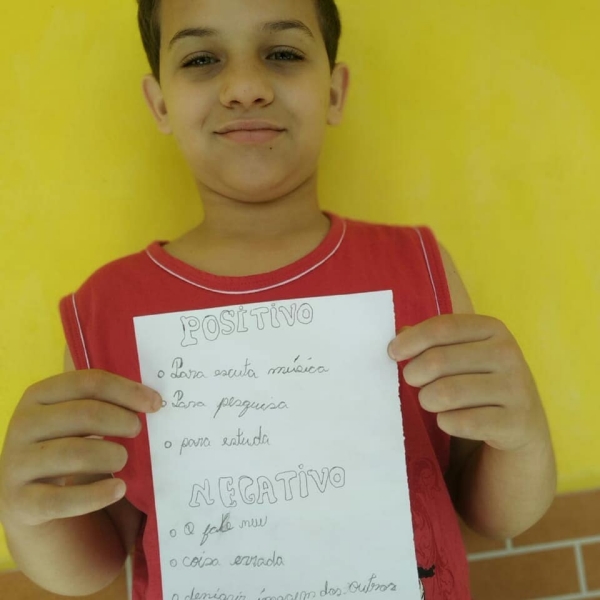 POSITIVO
Para escuta música
Para pesquisa
para estuda
NEGATIVO
O fake
coisa errada
denigrir imagem dos outros